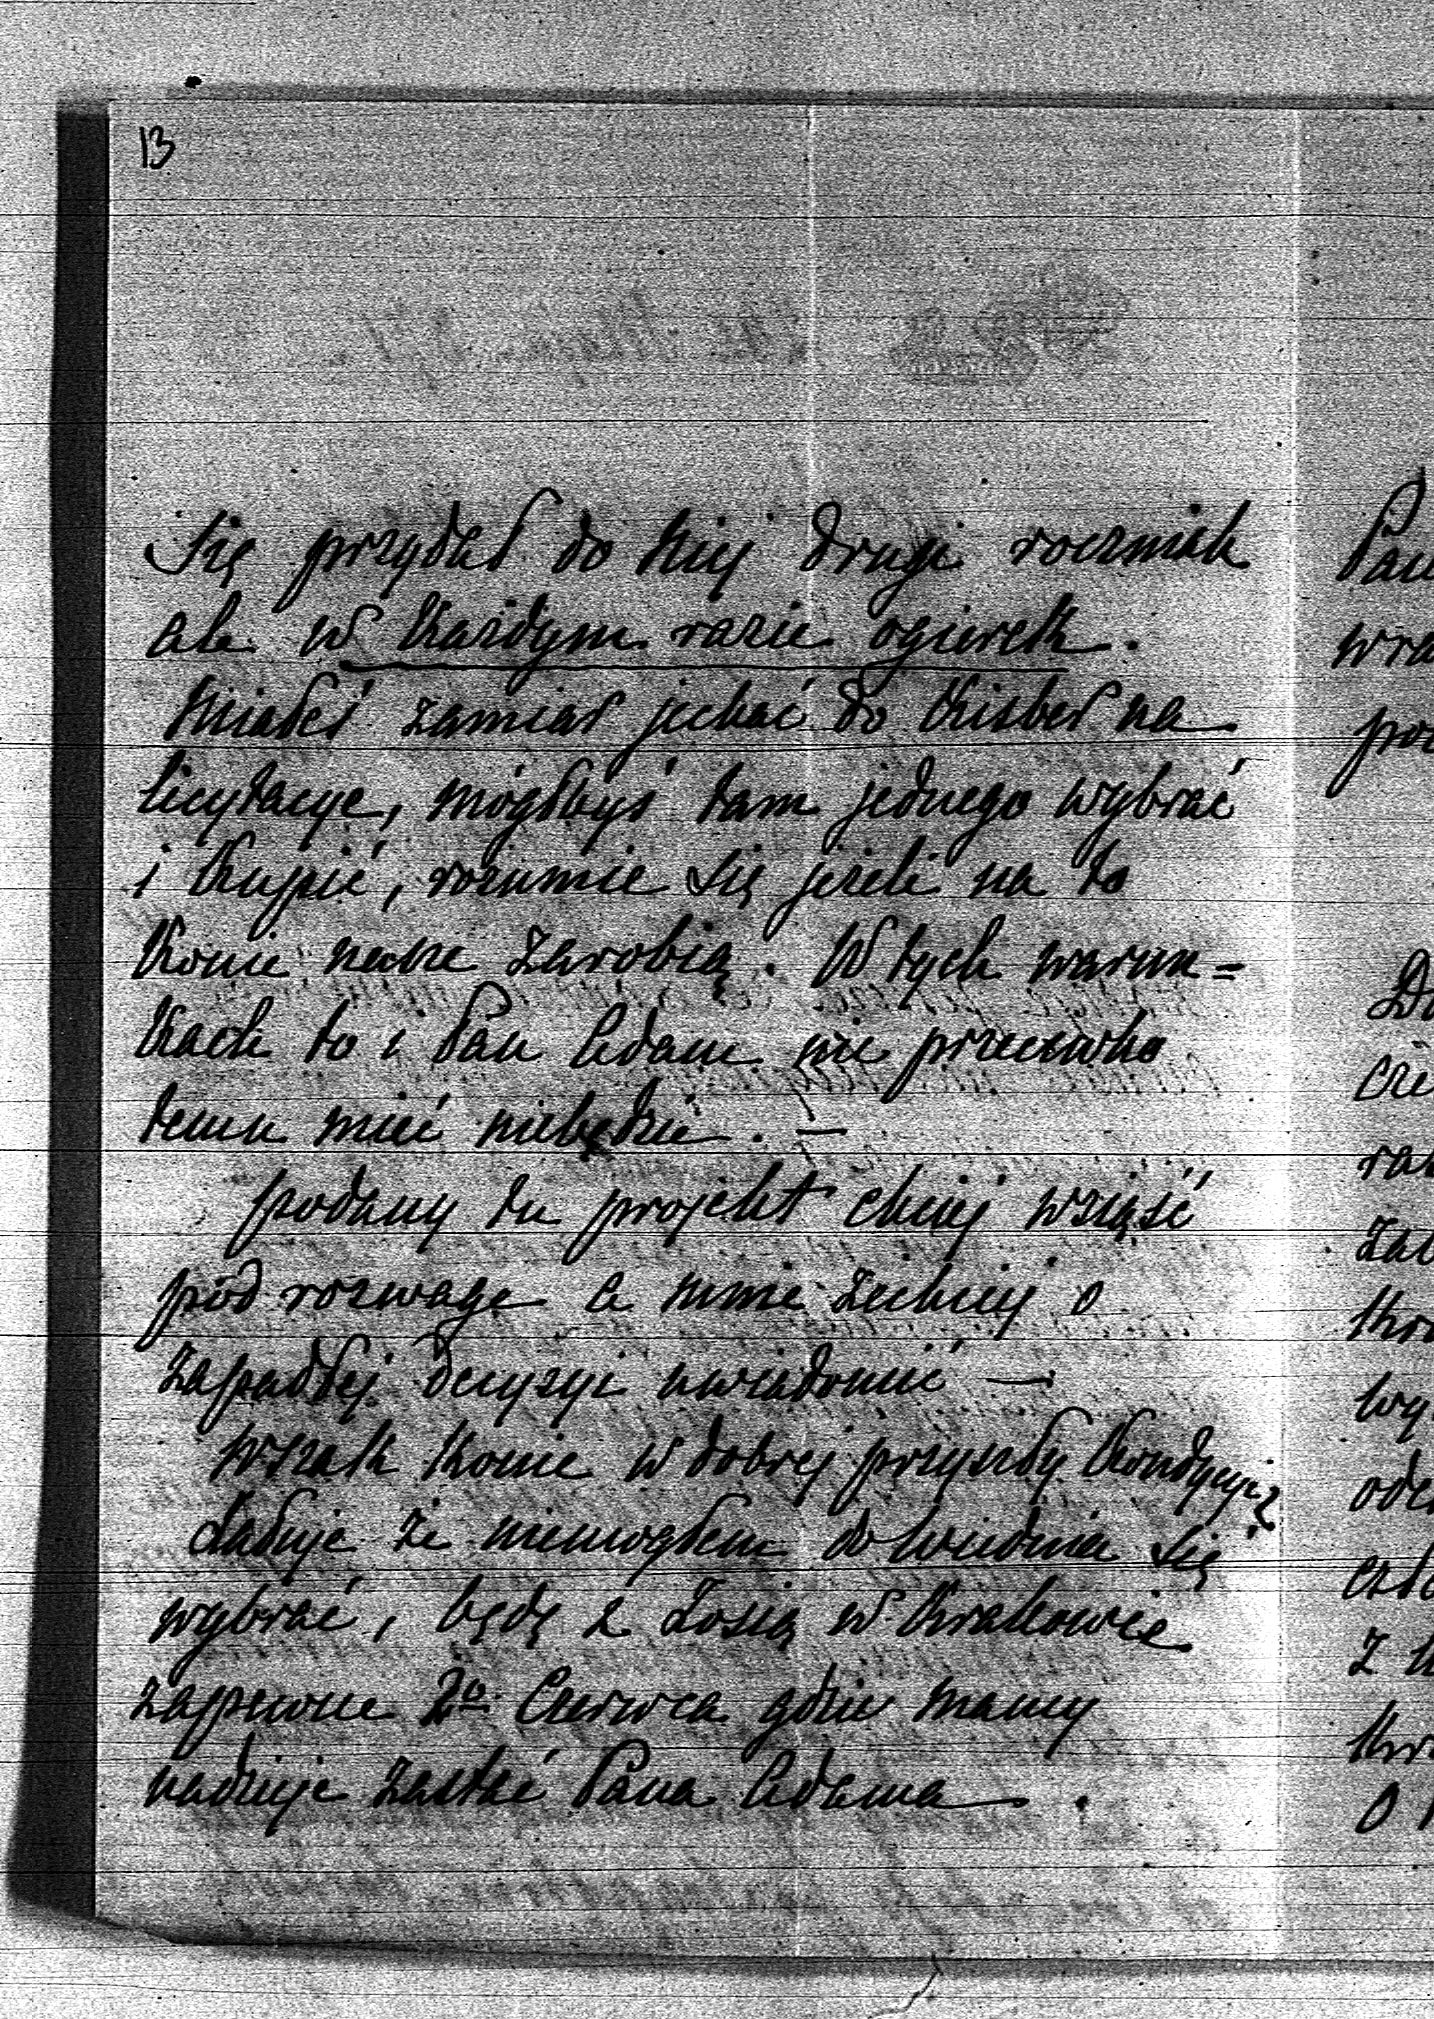 13
się przydał do niej drugi rocznik
ale w każdym razie ogierek.
Miałeś zamiar jechać do Kisber na
licytacye, mógłbyś tam jednego wybrać
i kupić, rozumie się jeżeli na to
konie nasze zarobią. W tych warun=
kach to i Pan Adam nic przeciwko
temu mieć niebędzie. —
podany tu projekt chciej wziąść
pod rozwagę a mnie zechciej o
zapadłej decyzyi uwiadomić —
wszak konie w dobrej przyszły kondycyi?
żałuję że niemogłem do Wiednia się
wybrać, będę z Zosią w Krakowie
zapewne 2o Czerwca gdzie mamy
nadzieję zastać Pana Adama.